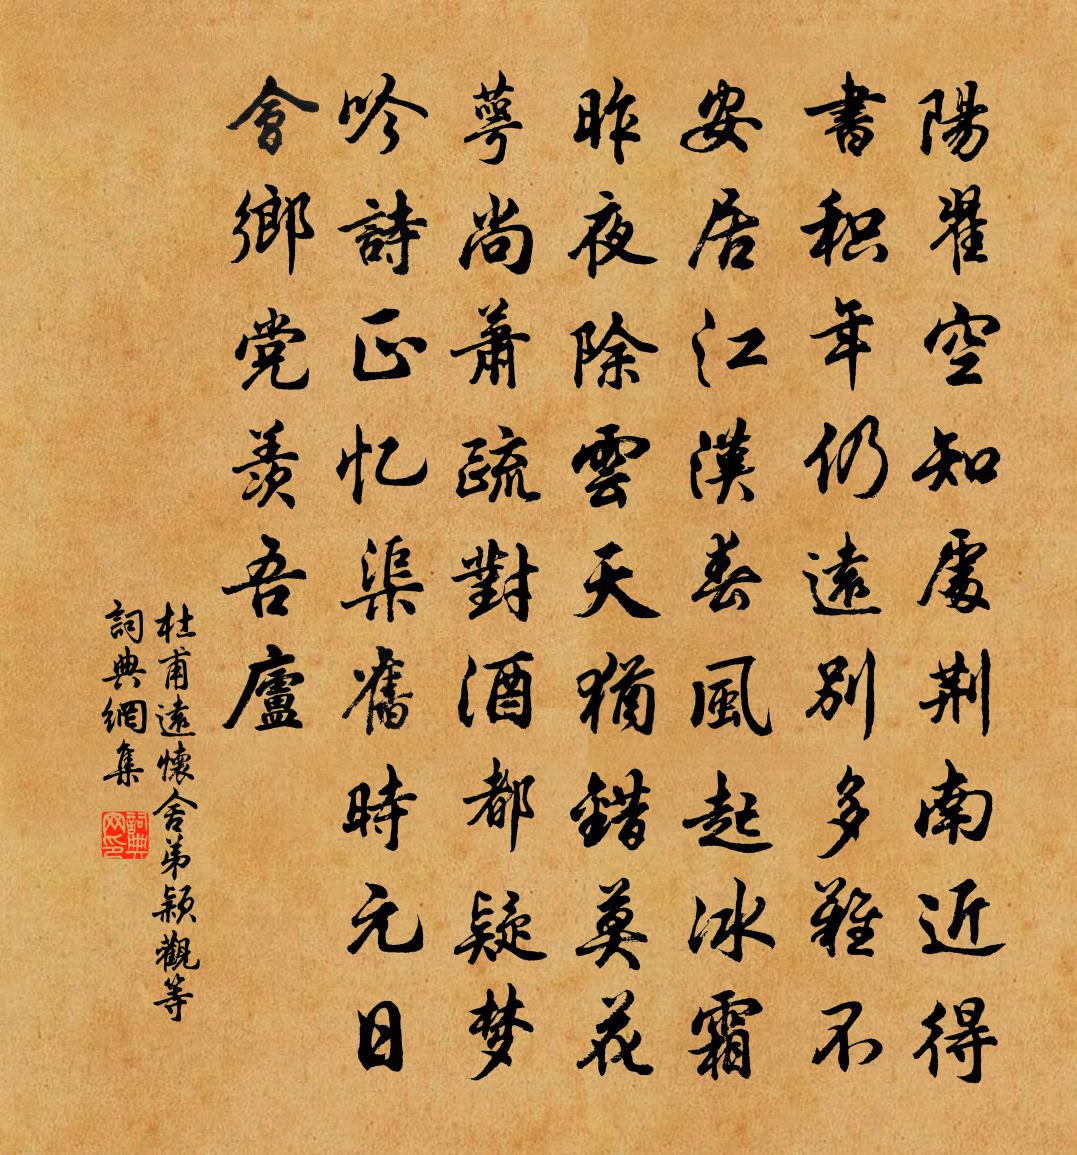 陽翟空知處荆南近得
書积年仍遠別多難不
安居江漢春風起冰霜
昨夜除雲天猶錯莫花
萼尚蕭疏對酒都疑梦
吟詩正忆渠舊時元日
會鄉党羨吾廬
杜甫遠懷舍弟穎觀等
詞典網集
詞典网印